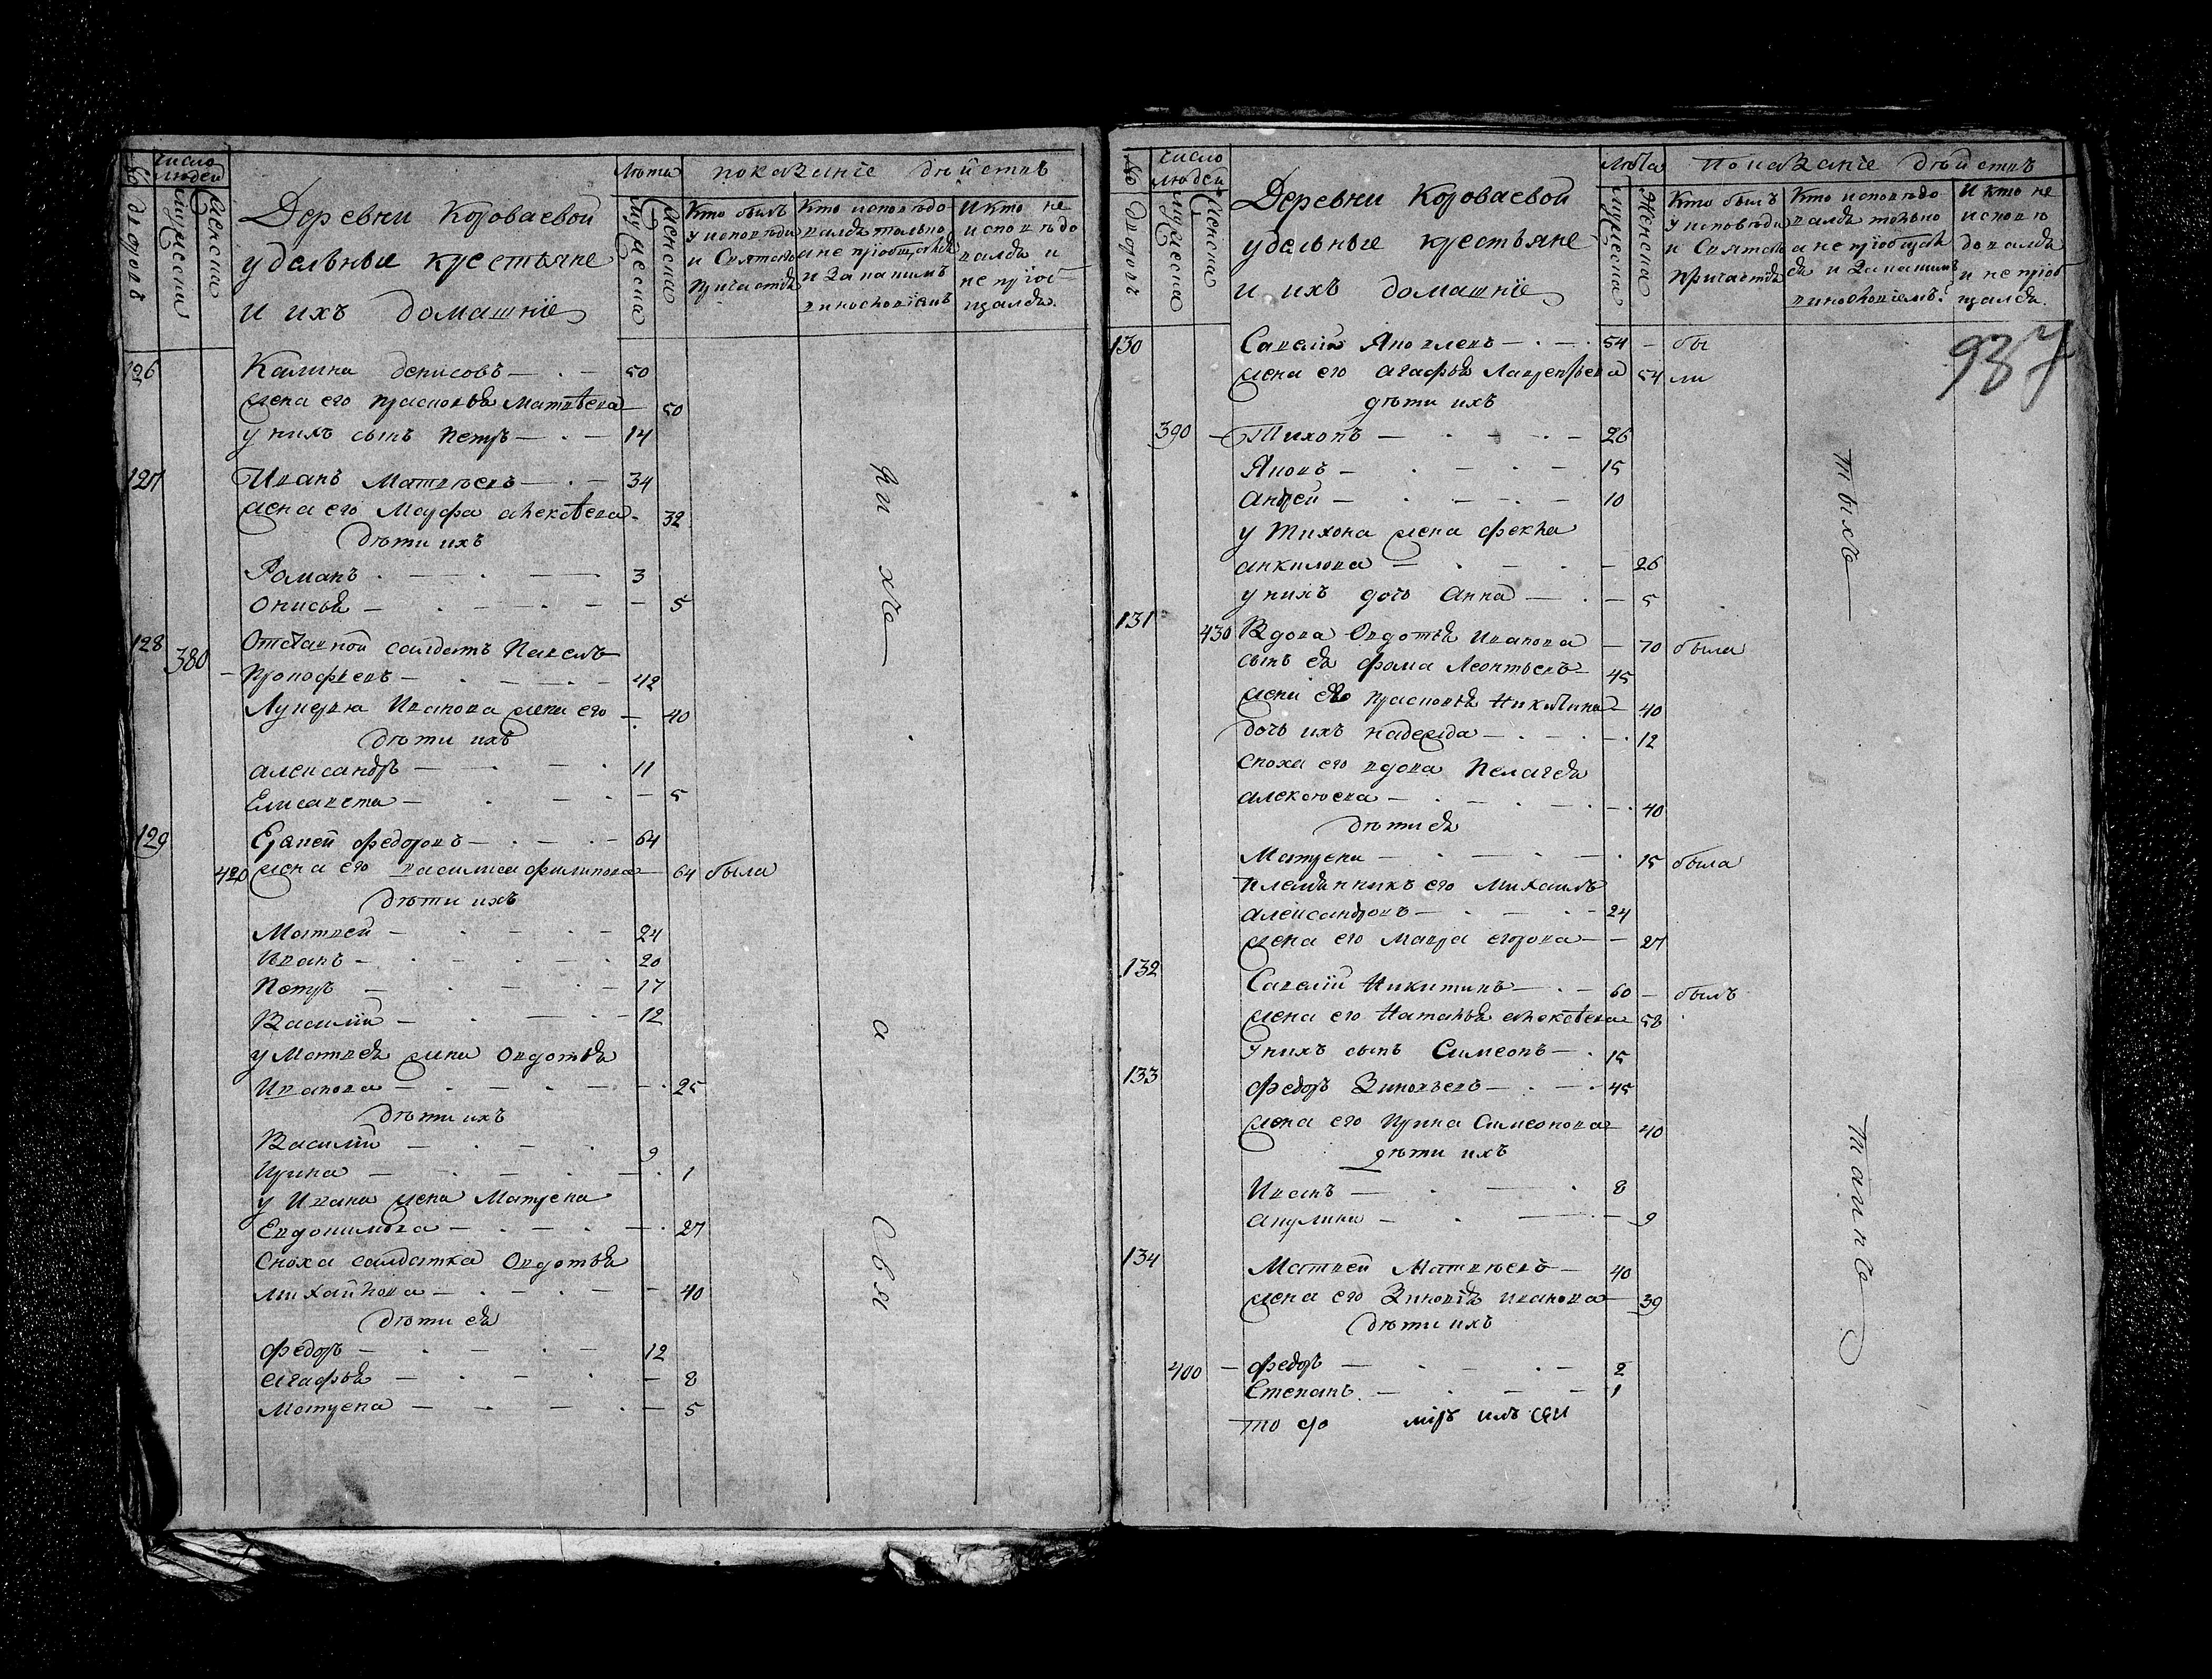 № дворовъ
Число людей
Мужеска
Женска
Деревни Короваевой
удельные крестьяне
и ихъ домашніе
Лѣта
Мужеска
Женска
показаніе дѣйствъ
Кто былъ
у исповѣди
и Святаго
Причастія
Кто исповѣдо-
вался только
а не пріобщился
и за какимъ
винословіемъ
И кто не
исповѣдо
вался и
не пріоб
щался.
126 Калина денисовъ — 50
жена его прасковья Матвѣева 50
у нихъ сынъ Петръ — 14
127 Иванъ Матвѣевъ — 34
жена его Марфа алексѣева 32
дѣти ихъ
Романъ 3
Онисья — 5
128 Отставной салдатъ Павелъ
380 Прокофьевъ — 42
Лукерья Иванова жена его — 40
дѣти ихъ
александръ — 11
Елисавета — 5
129 Еремей федоровъ — 64
420 жена его василиса филипова 64 была
дѣти ихъ
Матвей — 24
Иванъ — 20
Петръ — 17
Василій — 12
у Матвея жена Овдотья
Иванова — 25
дѣти ихъ
Василій — 9
Ирина — 1
у Ивана жена Матрена
Евдокимова — 27
сноха салдатка Овдотья
михайлова — 40
дѣти ея
федоръ — 12
агафья — 8
Матрена — 5
№ дворовъ
число людей
Мужеска
Женска
Деревни Короваевой
удельные крестьяне
и ихъ домашніе
Лѣта
Мужеска
Женска
показаніе дѣйствъ
Кто былъ
у исповѣди
и Святаго
Причастія
Кто исповѣдо
вался только
а не пріобщил
ся и за какимъ
винословіемъ.
И кто не
исповѣ
довался
и не пріоб
щался.
937
130 Савелій Яковлевъ — 54 — бы
жена его агафья Лаврентьева 54 ли
дѣти ихъ
390 — Тихонъ — 26
Яковъ — 15
андрей — 10
у Тихона жена фекла
анкилова — 26
у нихъ дочь анна — 5
131 430 Вдова Овдотья Иванова — 70 была
сынъ ея фома Леонтьевъ 45
жена его прасковья Никитина 40
дочь ихъ надежда — 12
сноха его вдова Пелагея
алексѣева — 40
дѣти ея
Матрена — 15 была
племянникъ его Михаилъ
александровъ — 24
жена его мавра егорова — 27
132 Савелій Никитинъ — 60 — былъ
жена его Наталья алексѣева 58
у нихъ сынъ Симеонъ — 15
133 федоръ Зиновьевъ — 45
жена его Ирина Симеонова 40
дѣти ихъ
Иванъ — 8
акулина — 9
134 Матвей Матвѣевъ — 40
жена его Зиновія иванова 39
дѣти ихъ
400 — федоръ — 2
Степанъ — 1